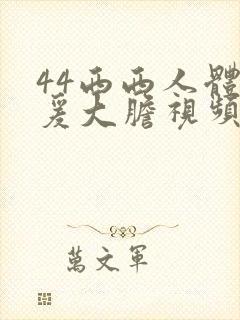 44西西人體
爰大膽視頻
萬文軍